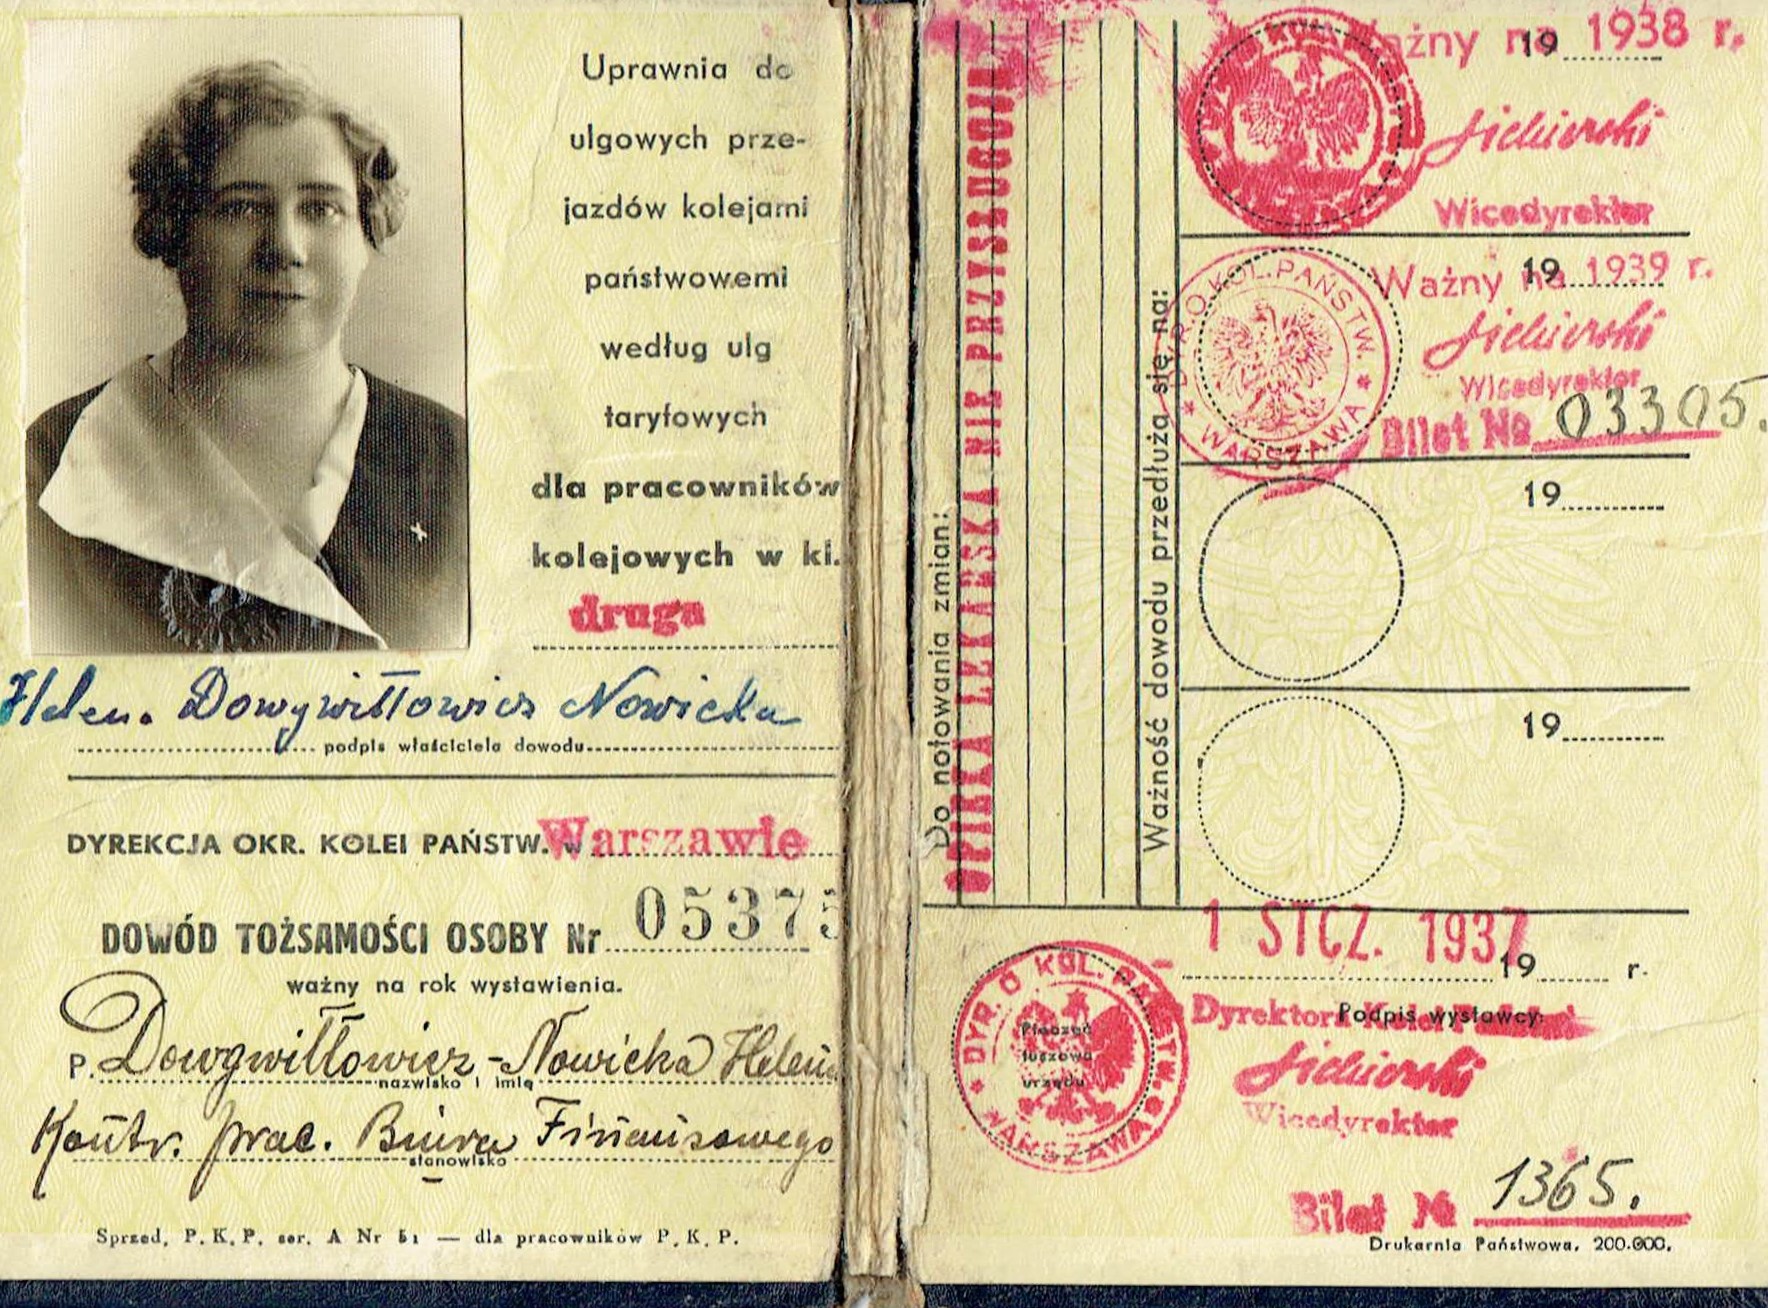 Uprawnia do
ulgowych prze-
jazdów kolejami
państwowemi
według ulg
taryfowych
dla pracowników
kolejowych w kl.
druga
Helena Dowgwiłłowicz Nowicka
podpis właściciela dowodu
DYREKCJA OKR. KOLEI PAŃSTW. w Warszawie
DOWÓD TOŻSAMOŚCI OSOBY Nr 05375
ważny na rok wystawienia.
P. Dowgwiłłowicz-Nowicka Helena
nazwisko i imię
Kontr. prac. Biura Finansowego
stanowisko
Sprzed. P. K. P. ser. A Nr 51 — dla pracowników P. K. P.
Do notowania zmian:
OPIEKA LEKARSKA NIE PRZYSŁUGUJE
Ważność dowodu przedłuża się na:
Ważny na 1938 r.
19
Wicedyrektor
DYR. O. KOL. PAŃSTW. * WARSZAWA *
Ważny na 1939 r.
19
Wicedyrektor
Bilet № 03305.
19
19
1 STCZ. 1937
19 r.
DYR. O. KOL. PAŃSTW. * WARSZAWA
Pieczęć
tuszowa
urzędu
Podpis wystawcy:
Wicedyrektor
Bilet № 1365.
Drukarnia Państwowa. 200.000.